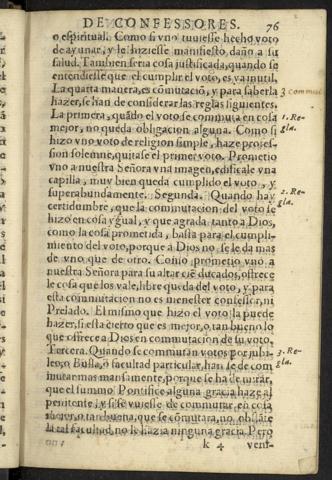 DE CONFESSORES. 76
o espiritual. Como si vno tuuiesse hecho voto
de ayunar, y le hiziesse manifiesto daño a su
salud. Tambien seria cosa justificada, quando se
entendiesse que el cumplir el voto, es ya inutil,
La quarta manera, es cõmutaciõ, y para saberla
hazer, se han de considerar las reglas siguientes.
La primera, quãdo el voto se commuta en cosa
mejor, no queda obligacion alguna. Como si
hizo vno voto de religion simple, haze profes-
sion solemne, quitase el primer voto. Prometio
vno a nuestra Señora vna imagen, edificale vna
capilla, muy bien queda cumplido el voto, y
superabundamente. Segunda. Quando hay
certidumbre, que la commutacion del voto se
hizo en cosa ygual, y que agrada tanto a Dios,
como la cosa prometida, basta para el cumpli-
miento del voto, porque a Dios no se le da mas
de vno que de otro. Como prometio vno a
nuestra Señora para su altar ciẽ ducados, ofrece
le cosa que los vale, libre queda del voto, y para
esta commutacion no es menester confessor, ni
Prelado. El mismo que hizo el voto la puede
hazer, si esta cierto que es mejor, o tan bueno lo
que ofrece a Dios en commutacion de su voto.
Tercera. Quando se commutan votos por jubi-
leo, o Bulla, o facultad particular, han se de com
mutar mas mansamente, porque se ha de mirar,
que el summo Pontifice alguna gracia haze al
penitente, y si se vuiesse de commutar en cosa
mejor, o tan buena, que se cõmutara, no obstãte
la tal facultad, no le hazia ninguna gracia. Pero
k 4 veni-
3 commu
1. Re-
gla.
2. Re-
gla.
3. Re-
gla.